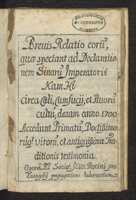 Brevis Relatio eorū,
quæ spectant ad Declaratio-
nem Sinarū Imperatoris
Kam Hi
Circa Cæli, Cumfucij, et Avorū
cultū, datam anno 1700.
Accedunt Primatū, Doctissimo-
rūq' virorū, et antiquissimæ Tra-
ditionis testimonia.
Operâ PP. Societ. Jesu Pekini pro
Evangelij propagatione laborantium.